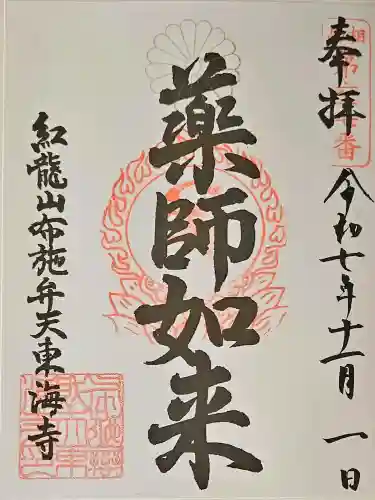 奉拝
令和七年十一月一日
薬師如来
紅龍山布施弁天東海寺